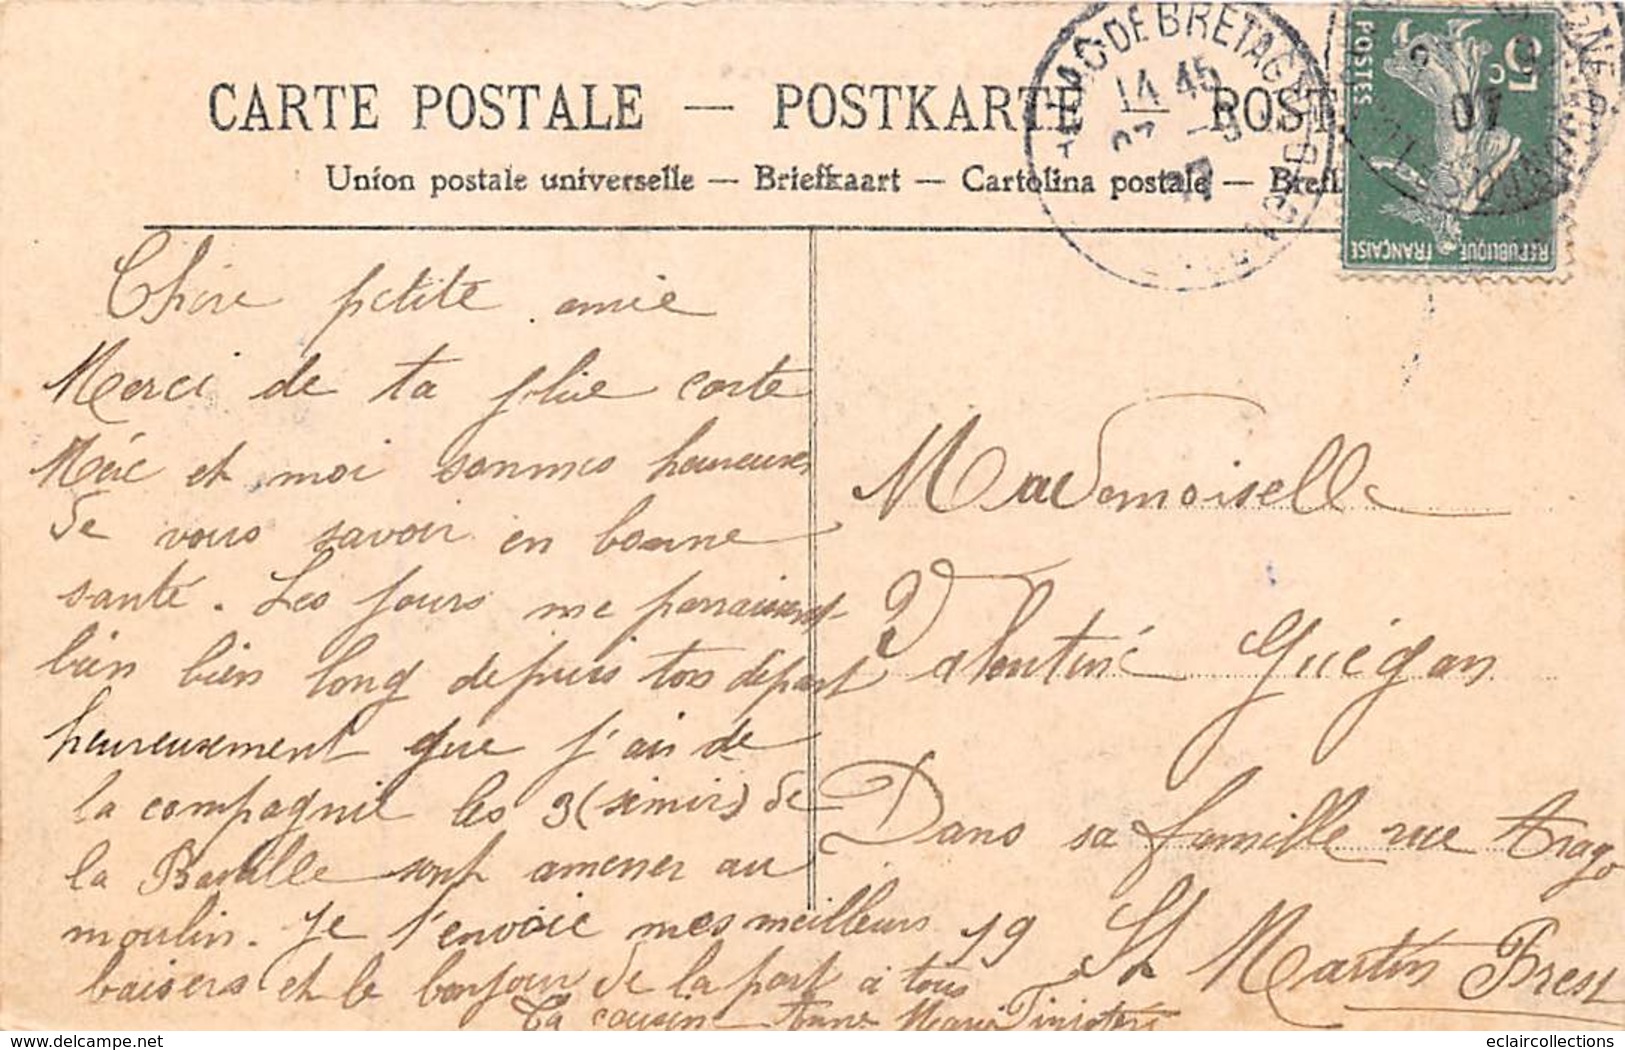 CARTE POSTALE — POSTKARTE — POST
Union postale universelle — Briefkaart — Cartolina postale — Brefk
AC DE BRETAGNE
14 45
07
5 c
POSTES
REPUBLIQUE FRANÇAISE
07
Chère petite amie
Merci de ta jolie carte
et moi sommes heureuses
de vous savoir en bonne
santé. Les jours me paraissent
bien bien long depuis ton départ
heureusement que j'ai de
la compagnie les 3 de
la Bastille sont amener au
moulin. Je t'envoie mes meilleurs
baisers et le bonjour de la part à tous
Ta cousine Anne Marie
Mademoiselle
Valentine Guégan
Dans sa famille rue Arago
19 St Martin Brest
eclaircollections